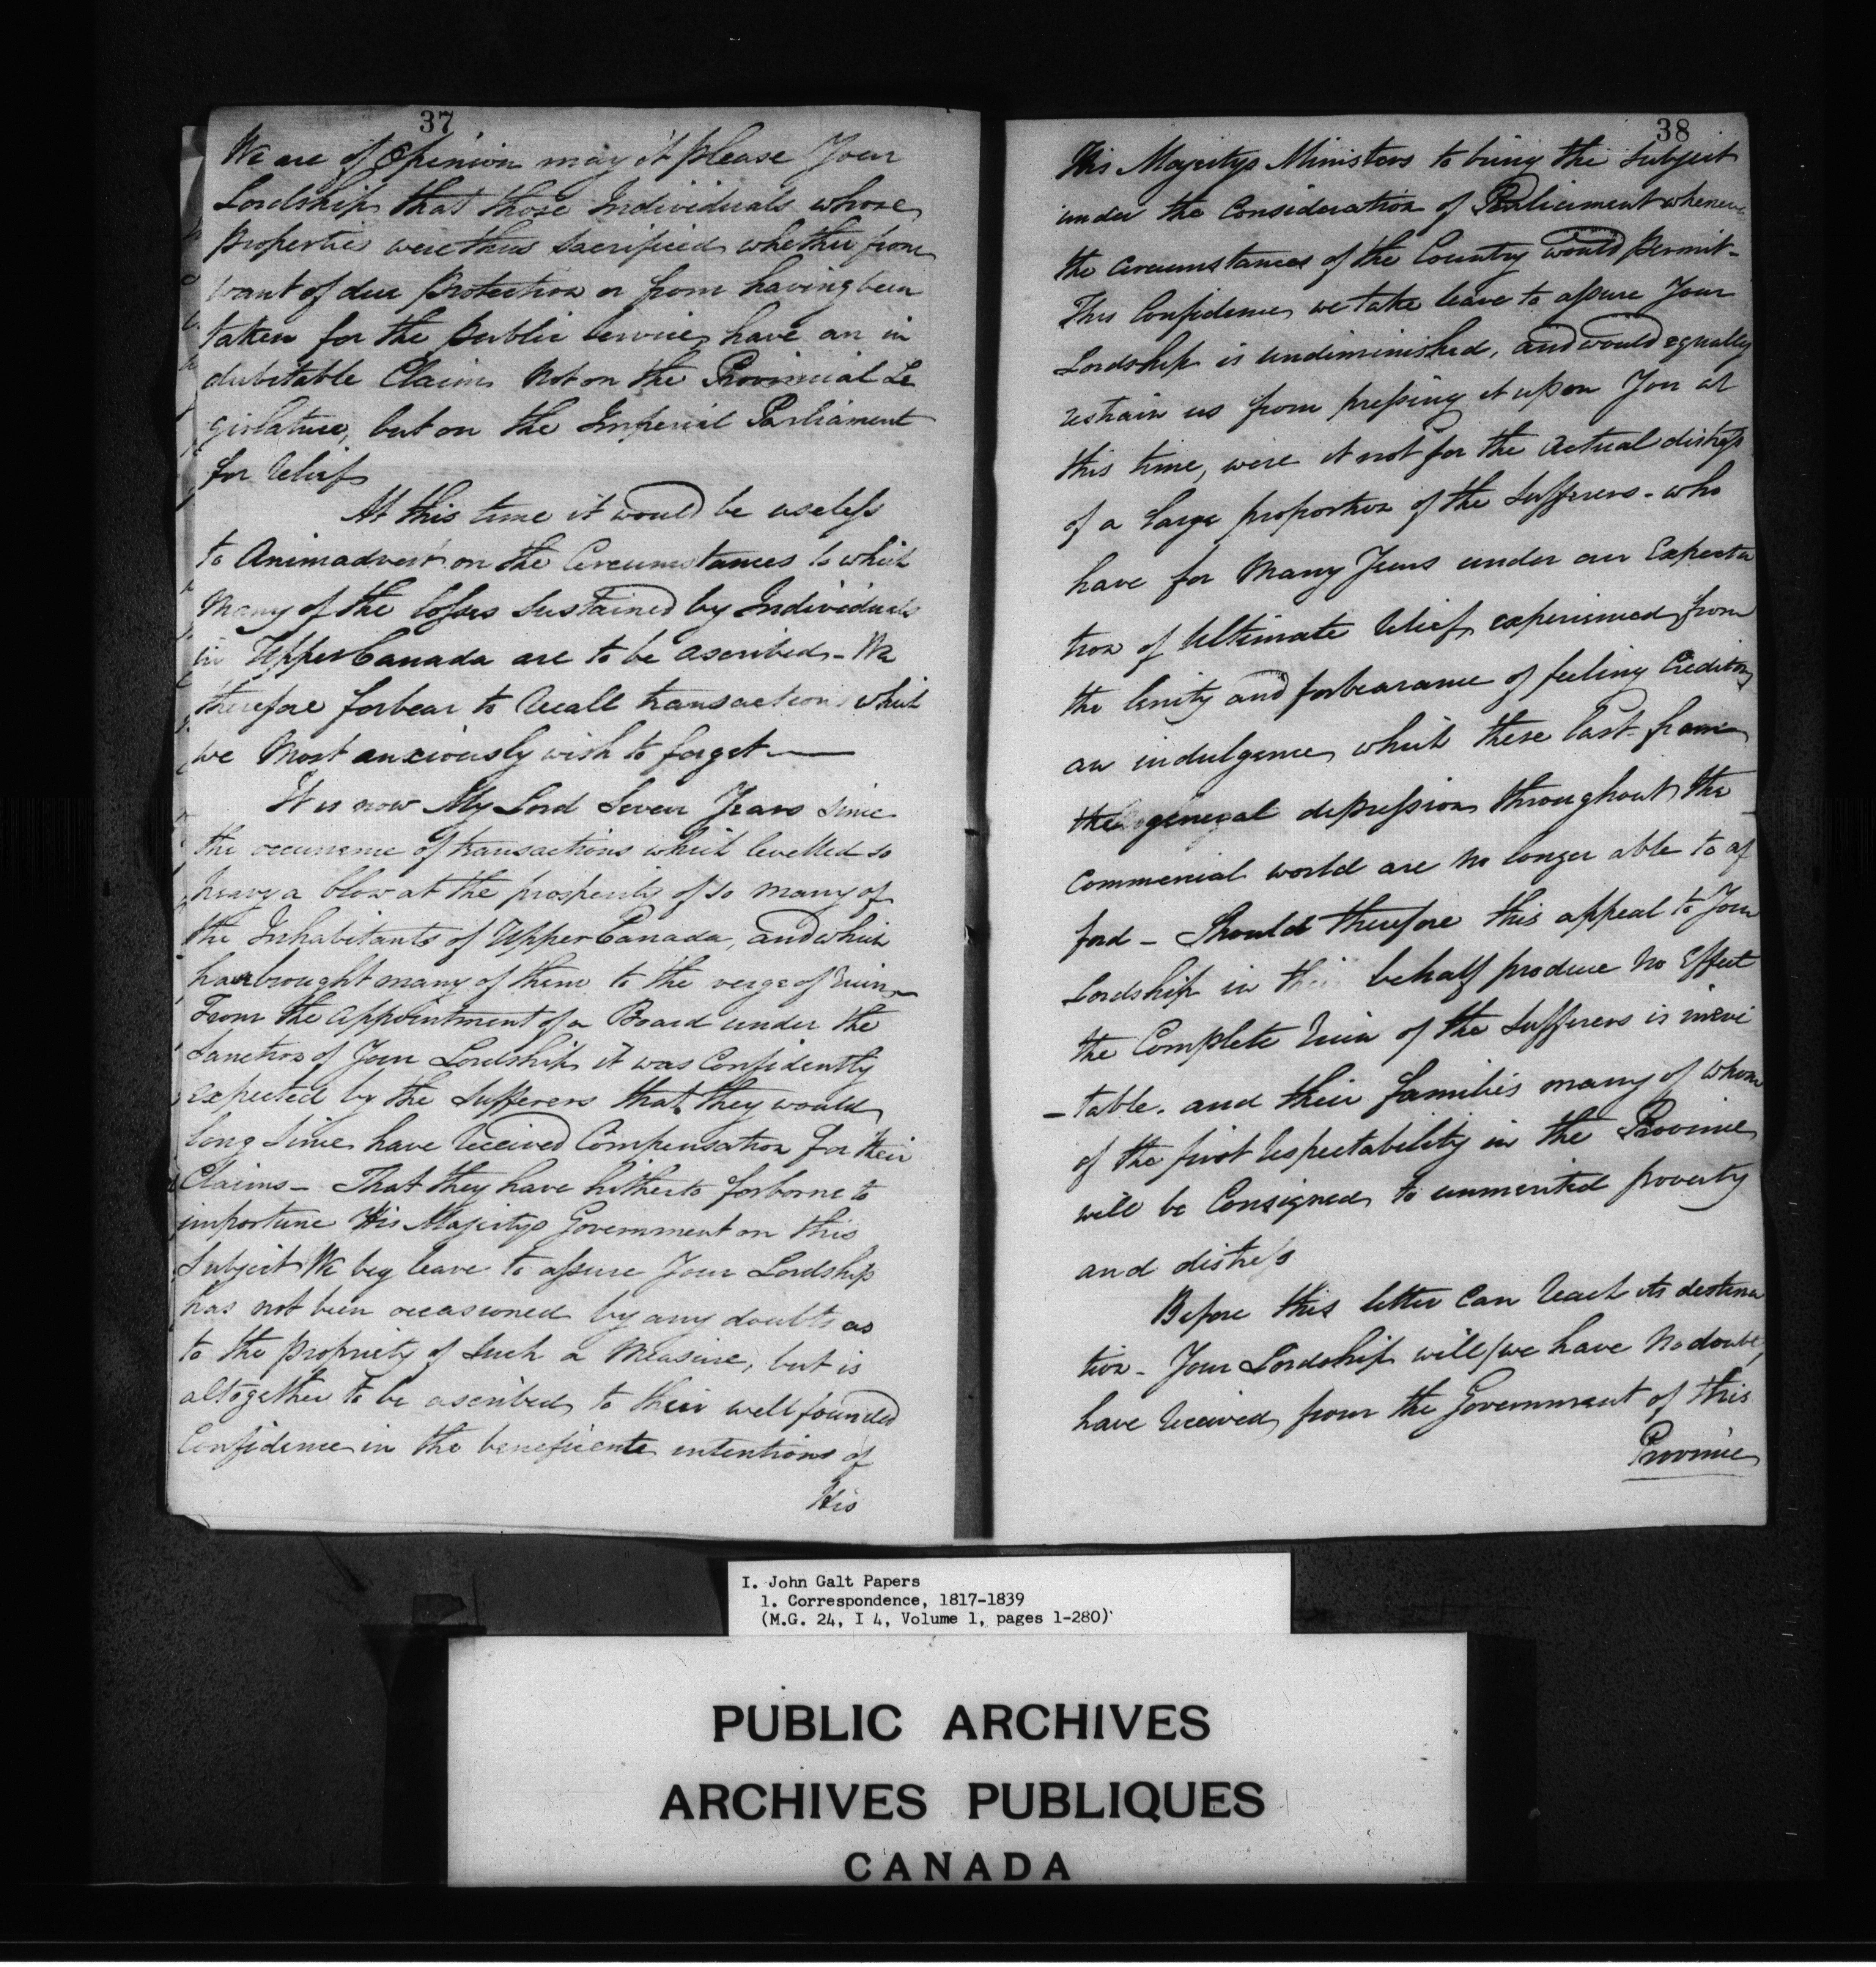 37
We are of Opinion may it please Your
Lordship that those Individuals whose
properties were thus sacrificed whether from
want of due protection or from having been
taken for the Public Service have an in
dubitable Claim not on the Provincial Le
gislature, but on the Imperial Parliament
for Relief
At this time it would be useless
to Animadvert on the Circumstances to which
Many of the losses sustained by Individuals
in Upper Canada are to be ascribed - We
therefore forbear to recall transactions which
we Most anxiously wish to forget —
It is now My Lord Seven Years since
the occurrence of transactions which levelled so
heavy a blow at the prosperity of so many of
the Inhabitants of Upper Canada, and which
have brought many of them to the verge of ruin -
From the Appointment of a Board under the
Sanction of Your Lordship it was Confidently
expected by the Sufferers that they would
long since have received Compensation for their
Claims - That they have hitherto forborne to
importune His Majestys Government on this
Subject We beg leave to assure Your Lordship
has not been occasioned by any doubts as
to the propriety of such a Measure, but is
altogether to be ascribed to their well founded
Confidence in the beneficente intentions of
His
38
His Majestys Ministers to bring the Subject
under the Consideration of Parliament whenever
the Circumstances of the Country would permit -
This Confidence we take leave to assure Your
Lordship is undiminished, and would equally
restrain us from pressing it upon You at
this time, were it not for the Actual distress
of a large proportion of the Sufferers - who
have for Many Years under an Expecta
tion of Ultimate Relief experienced from
the lenity and forbearance of feeling Creditors
an indulgence which these last from
the general depression throughout the
Commercial world are no longer able to af
ford - Should therefore this appeal to Your
Lordship in their behalf produce no Effect
the Complete ruin of the Sufferers is inevi
-table. and their families many of whom
of the first respectability in the Province
will be Consigned to unmerited poverty
and distress
Before this letter Can reach its destina
tion - Your Lordship will (we have No doubt)
have received from the Government of this
Province
I. John Galt Papers
1. Correspondence, 1817-1839
(M.G. 24, I 4, Volume 1, pages 1-280)
PUBLIC ARCHIVES
ARCHIVES PUBLIQUES
CANADA